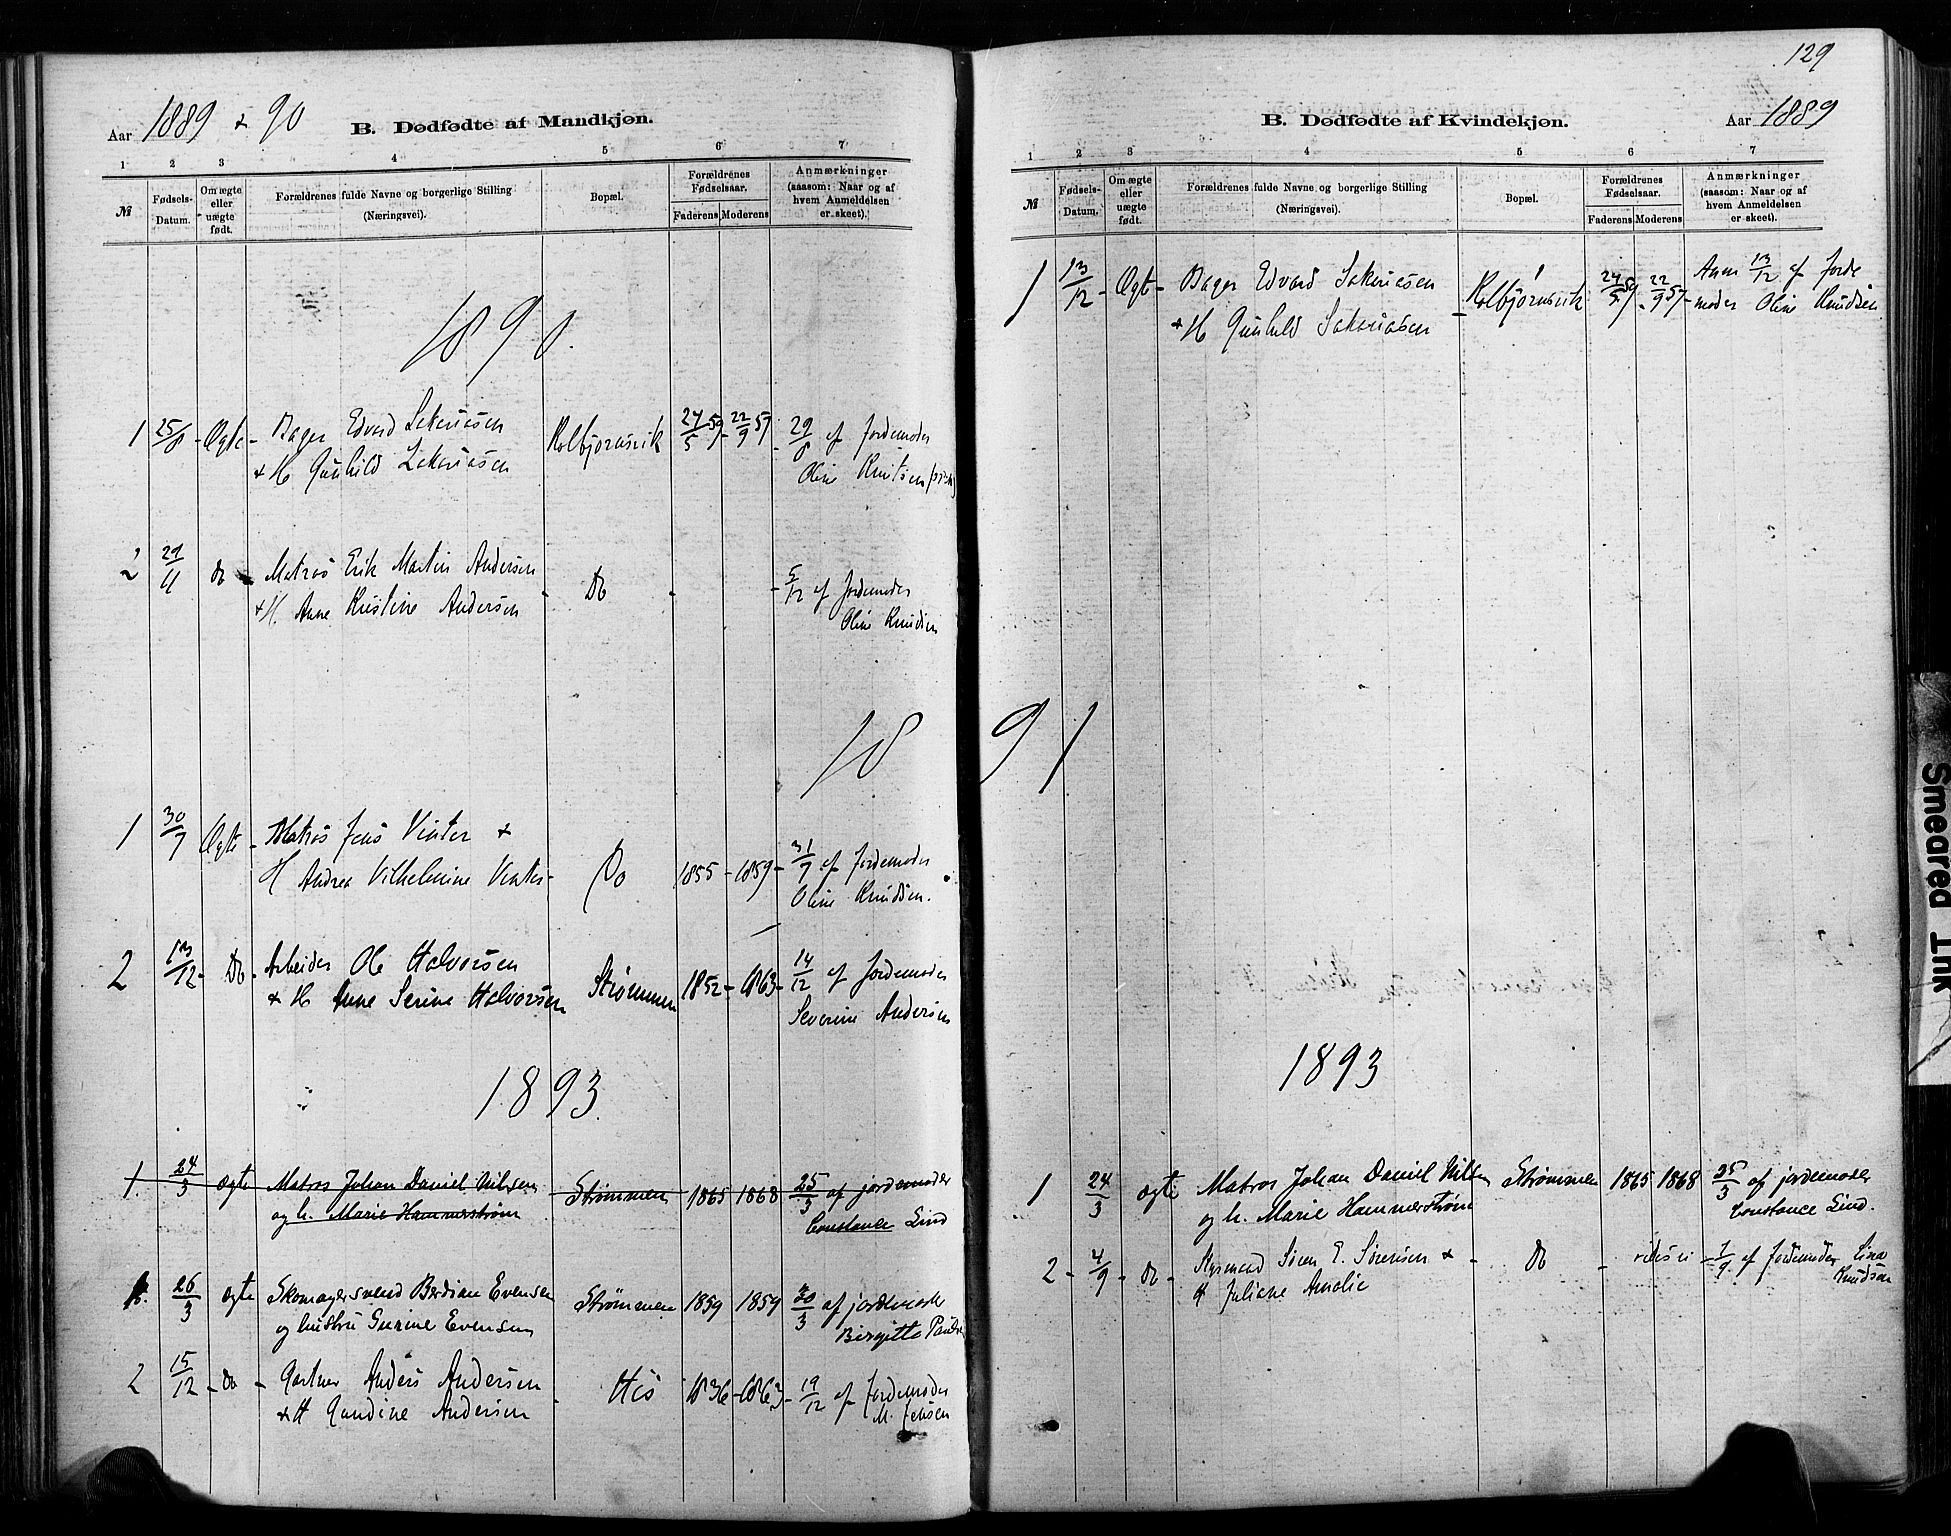 Aar 1889 + 90
B. Dødfødte af Mandkjøn.
1 2 3 4 5 6 7
№
Fødsels-
Datum.
Om ægte
eller
uægte
født.
Forældrenes fulde Navne og borgerlige Stilling
(Næringsvei).
Bopæl.
Forældrenes
Fødselsaar.
Faderens Moderens
Anmærkninger
(saasom: Naar og af
hvem Anmeldelsen
er skeet).
1890.
1 25/8 Ægte - Bager Edvard Sakariasen Kolbjørnsvik 24/5 59 - 22/9 57 - 29/8 af Jordemoder
+ H Gunhild Zakariasen Oline Knutsen
2 29/11 do - Matros Erik Martin Andersen - Do - - 5/12 af Jordemoder
+ H. Anne Kristine Andersen Oline Knudsen
1891
1 30/7 Ægte - Matros Jens Vinter +
H Andrea Vilhelmine Vinter - Do 1855 - 1859 - 31/7 af Jordemoder
Oline Knudsen.
2 13/12 - Do - Arbeider Ole Halvorsen Strømmen 1852 - 1863 - 14/12 af Jordemoder
+ H Anne Serine Halvorsen Severine Andersen
1893.
1. 24/3 ægte Matros Johan Daniel Nilsen Strømmen 1865 1868 25/3 af jordemoder
og h. Marie Hammerstrøm Constance Lind
1. 26/3 ægte Skomagersvend Berdian Evensen Strømmen 1859 1859 30/3 af jordemoder
og hustru Gurine Evensen Birgitte
2 15/12 - do - Gartner Anders Andersen - His 1836 - 1863 - 19/12 af Jordemoder
+ H Gundine Andersen M. Jensen
129
B. Dødfødte af Kvindekjøn.
Aar 1889
1 2 3 4 5 6 7
№
Fødsels-
Datum.
Om ægte
eller
uægte
født.
Forældrenes fulde Navne og borgerlige Stilling
(Næringsvei).
Bopæl.
Forældrenes
Fødselsaar.
Faderens Moderens
Anmærkninger
(saasom: Naar og af
hvem Anmeldelsen
er skeet).
1 13/12 - Ægte - Bager Edvard Sakariasen Kolbjørnsvik 24/5 59 - 22/9 57 - Anm 13/12 af Jorde
+ H Gunhild Sakariasen moder Oline Knudsen
1893
1 24/3 ægte Matros Johan Daniel Nilsen Strømmen 1865 1868 25/3 af jordemoder
og h. Marie Hammerstrøm Constance Lind.
2 - 4/9 - do - Styrmand Søren E. Sørensen + - Do - vides ei - 7/9 af Jordemoder Lina
H Juliane Amalie Knudson
Smeared Ink